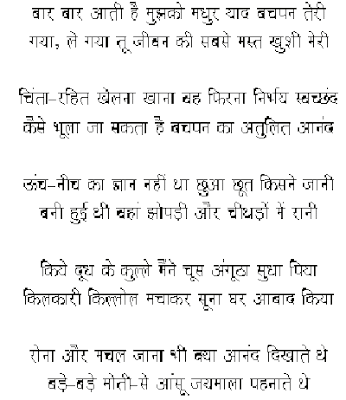 बार बार आती है मुझको मधुर याद बचपन तेरी
गया, ले गया तू जीवन की सबसे मस्त खुशी मेरी
चिंता-रहित खेलना खाना वह फिरना निर्भय स्वच्छंद
कैसे भूला जा सकता है बचपन का अतुलित आनंद
ऊंच-नीच का ज्ञान नहीं था छुआ छूत किसने जानी
बनी हुई थी वहां झोपड़ी और चीथड़ों में रानी
किये दूध के कुल्ले मैंने चूस अंगूठा सुधा पिया
किलकारी किल्लोल मचाकर सूना घर आबाद किया
रोना और मचल जाना भी क्या आनंद दिखाते थे
बड़े-बड़े मोती-से आंसू जयमाला पहनाते थे